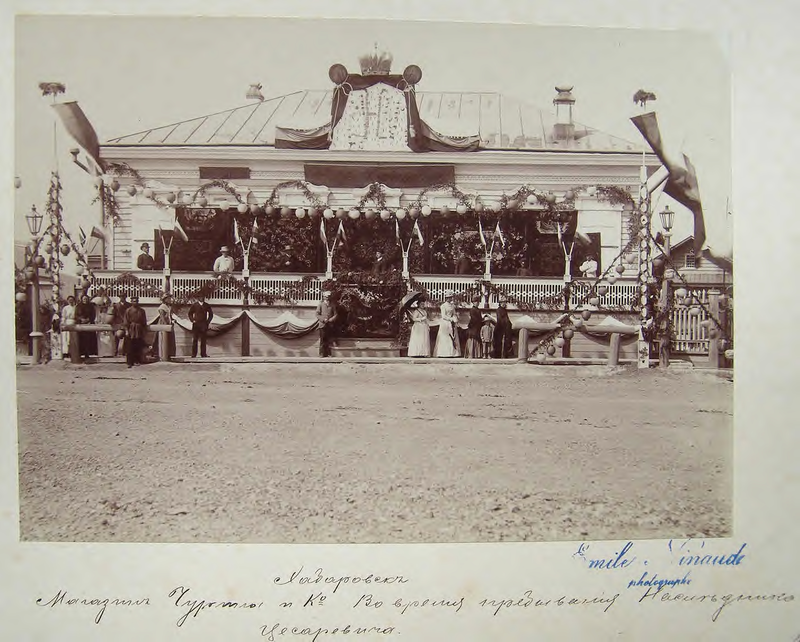 Emile Ninaude
photographe
Хабаровскъ
Магазинъ Чурина и Кº Во время пребыванія Наслѣдника
Цесаревича.